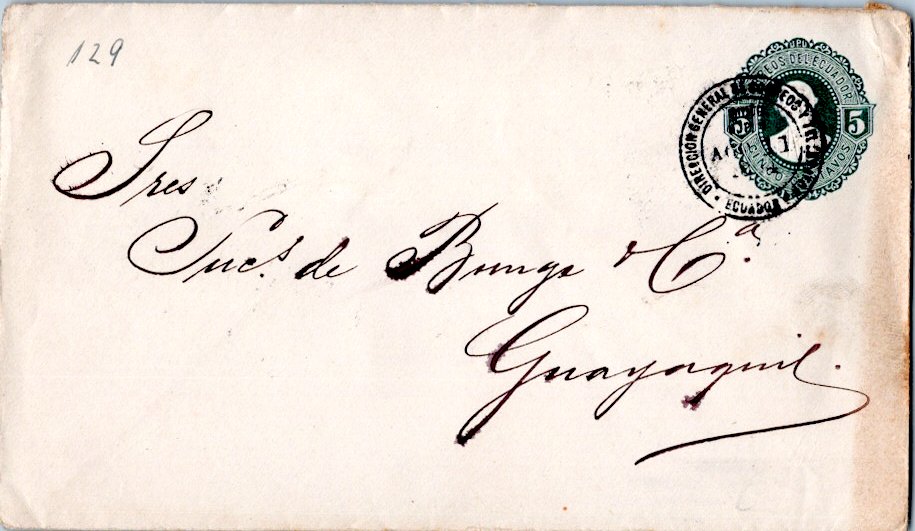 129
CORREOS DEL ECUADOR
5 5
CINCO CENTAVOS
DIRECCION GENERAL DE CORREOS Y
ECUADOR
Sres
Sucs. de Bunge & Ca.
Guayaquil.